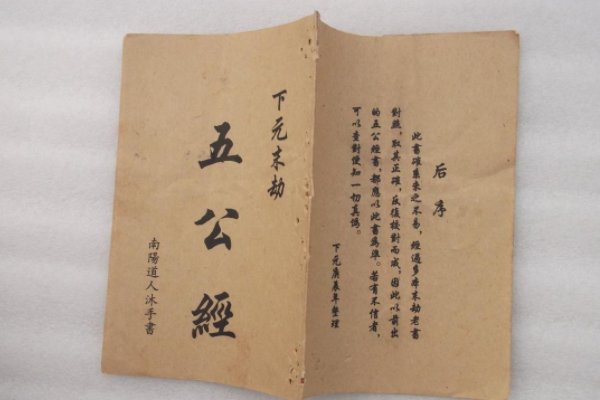 下元末劫
五公經
南陽道人沐手書
后序
此書確系來之不易，經過多本末劫老書
對照，取其正確，反復校對而成，因此以前出
的五公經書，都應以此書為準。若有不信者，
可以查對便知一切真偽。
下元庚辰年整理